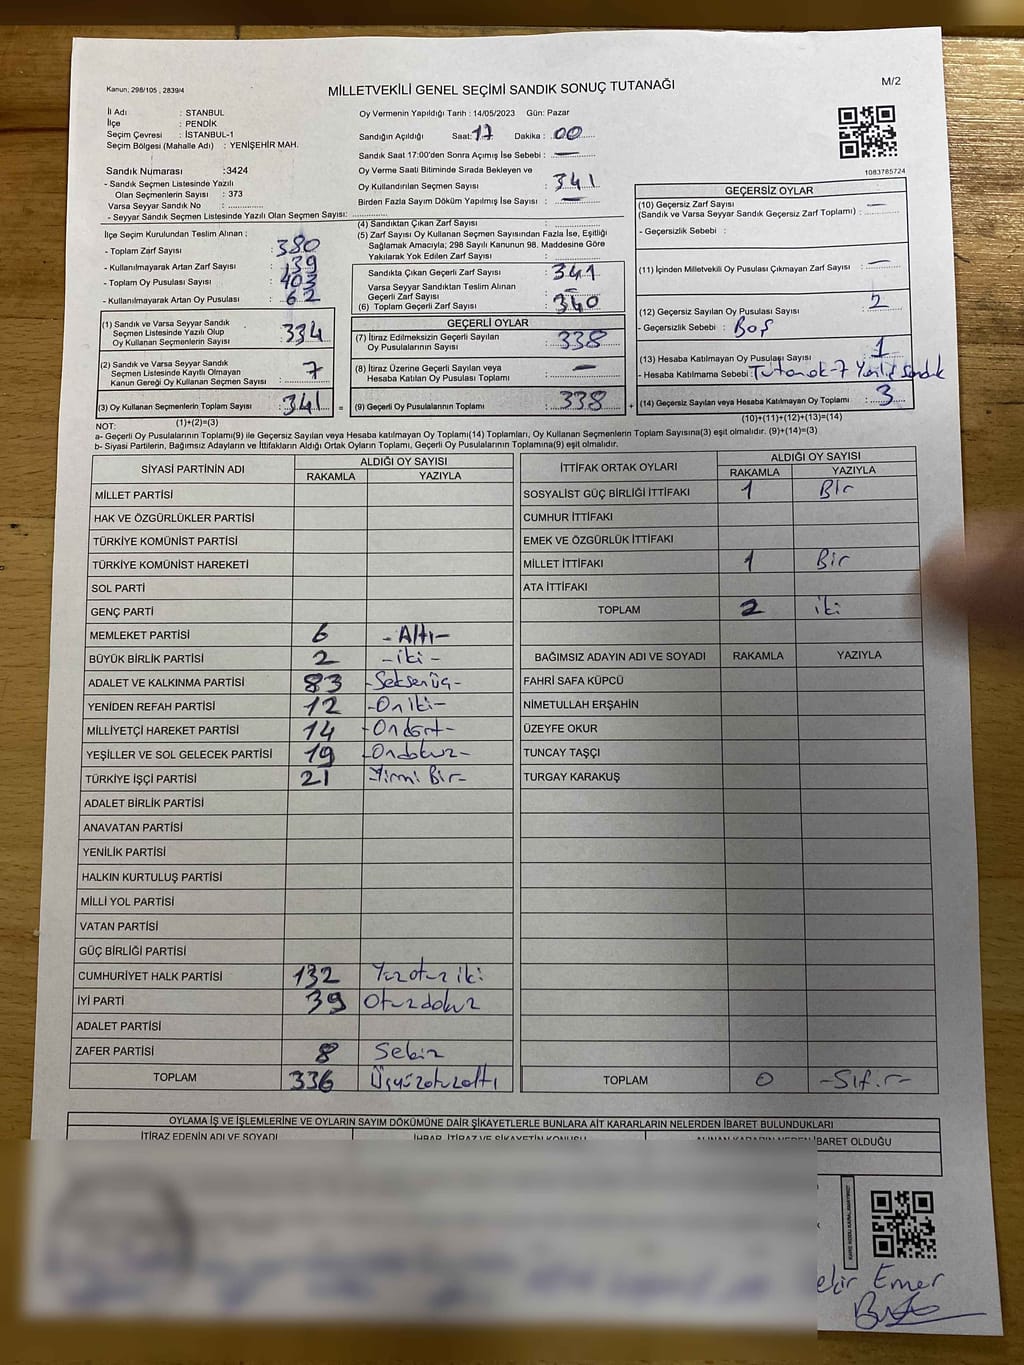 Kanun, 298/105 , 2839/4
MİLLETVEKİLİ GENEL SEÇİMİ SANDIK SONUÇ TUTANAĞI
M/2
İl Adı : STANBUL
İlçe : PENDİK
Seçim Çevresi : İSTANBUL-1
Seçim Bölgesi (Mahalle Adı) : YENİŞEHİR MAH.
Sandık Numarası :3424
- Sandık Seçmen Listesinde Yazılı
Olan Seçmenlerin Sayısı : 373
Varsa Seyyar Sandık No :
- Seyyar Sandık Seçmen Listesinde Yazılı Olan Seçmen Sayısı:
Oy Vermenin Yapıldığı Tarih : 14/05/2023 Gün: Pazar
Sandığın Açıldığı Saat: 17 Dakika : 00
Sandık Saat 17:00'den Sonra Açımış İse Sebebi : —
Oy Verme Saati Bitiminde Sırada Bekleyen ve
Oy Kullandırılan Seçmen Sayısı : 341
Birden Fazla Sayım Döküm Yapılmış İse Sayısı : —
1083785724
İlçe Seçim Kurulundan Teslim Alınan ;
- Toplam Zarf Sayısı : 380
- Kullanılmayarak Artan Zarf Sayısı : 139
- Toplam Oy Pusulası Sayısı : 403
- Kullanılmayarak Artan Oy Pusulası : 62
(1) Sandık ve Varsa Seyyar Sandık
Seçmen Listesinde Yazılı Olup
Oy Kullanan Seçmenlerin Sayısı : 334
(2) Sandık ve Varsa Seyyar Sandık
Seçmen Listesinde Kayıtlı Olmayan
Kanun Gereği Oy Kullanan Seçmen Sayısı : 7
(3) Oy Kullanan Seçmenlerin Toplam Sayısı : 341 =
(1)+(2)=(3)
(4) Sandıktan Çıkan Zarf Sayısı :
(5) Zarf Sayısı Oy Kullanan Seçmen Sayısından Fazla İse, Eşitliği
Sağlamak Amacıyla; 298 Sayılı Kanunun 98. Maddesine Göre
Yakılarak Yok Edilen Zarf Sayısı :
Sandıkta Çıkan Geçerli Zarf Sayısı : 341
Varsa Seyyar Sandıktan Teslim Alınan
Geçerli Zarf Sayısı : —
(6) Toplam Geçerli Zarf Sayısı : 340
GEÇERLİ OYLAR
(7) İtiraz Edilmeksizin Geçerli Sayılan
Oy Pusulalarının Sayısı : 338
(8) İtiraz Üzerine Geçerli Sayılan veya
Hesaba Katılan Oy Pusulası Toplamı : —
(9) Geçerli Oy Pusulalarının Toplamı : 338 +
GEÇERSİZ OYLAR
(10) Geçersiz Zarf Sayısı
(Sandık ve Varsa Seyyar Sandık Geçersiz Zarf Toplamı) : —
- Geçersizlik Sebebi :
(11) İçinden Milletvekili Oy Pusulası Çıkmayan Zarf Sayısı : —
(12) Geçersiz Sayılan Oy Pusulası Sayısı : 2
- Geçersizlik Sebebi : Boş
(13) Hesaba Katılmayan Oy Pusulası Sayısı : 1
- Hesaba Katılmama Sebebi : Tutanak-7 Yanlış sandık
(14) Geçersiz Sayılan veya Hesaba Katılmayan Oy Toplamı : 3
(10)+(11)+(12)+(13)=(14)
NOT:
a- Geçerli Oy Pusulalarının Toplamı(9) ile Geçersiz Sayılan veya Hesaba katılmayan Oy Toplamı(14) Toplamları, Oy Kullanan Seçmenlerin Toplam Sayısına(3) eşit olmalıdır. (9)+(14)=(3)
b- Siyasi Partilerin, Bağımsız Adayların ve İttifakların Aldığı Ortak Oyların Toplamı, Geçerli Oy Pusulalarının Toplamına(9) eşit olmalıdır.
SİYASİ PARTİNİN ADI ALDIĞI OY SAYISI
RAKAMLA YAZIYLA
MİLLET PARTİSİ
HAK VE ÖZGÜRLÜKLER PARTİSİ
TÜRKİYE KOMÜNİST PARTİSİ
TÜRKİYE KOMÜNİST HAREKETİ
SOL PARTİ
GENÇ PARTİ
MEMLEKET PARTİSİ 6 -Altı-
BÜYÜK BİRLİK PARTİSİ 2 -iki-
ADALET VE KALKINMA PARTİSİ 83 -Seksenüç-
YENİDEN REFAH PARTİSİ 12 -Oniki-
MİLLİYETÇİ HAREKET PARTİSİ 14 -Ondört-
YEŞİLLER VE SOL GELECEK PARTİSİ 19 -Ondokuz-
TÜRKİYE İŞÇİ PARTİSİ 21 -Yirmi Bir-
ADALET BİRLİK PARTİSİ
ANAVATAN PARTİSİ
YENİLİK PARTİSİ
HALKIN KURTULUŞ PARTİSİ
MİLLİ YOL PARTİSİ
VATAN PARTİSİ
GÜÇ BİRLİĞİ PARTİSİ
CUMHURİYET HALK PARTİSİ 132 Yüzotuziki
İYİ PARTİ 39 Otuzdokuz
ADALET PARTİSİ
ZAFER PARTİSİ 8 Sekiz
TOPLAM 336 Üçyüzotuzaltı
İTTİFAK ORTAK OYLARI ALDIĞI OY SAYISI
RAKAMLA YAZIYLA
SOSYALİST GÜÇ BİRLİĞİ İTTİFAKI 1 Bir
CUMHUR İTTİFAKI
EMEK VE ÖZGÜRLÜK İTTİFAKI
MİLLET İTTİFAKI 1 Bir
ATA İTTİFAKI
TOPLAM 2 iki
BAĞIMSIZ ADAYIN ADI VE SOYADI RAKAMLA YAZIYLA
FAHRİ SAFA KÜPCÜ
NİMETULLAH ERŞAHİN
ÜZEYFE OKUR
TUNCAY TAŞÇI
TURGAY KARAKUŞ
TOPLAM 0 -Sıfır-
OYLAMA İŞ VE İŞLEMLERİNE VE OYLARIN SAYIM DÖKÜMÜNE DAİR ŞİKAYETLERLE BUNLARA AİT KARARLARIN NELERDEN İBARET BULUNDUKLARI
İTİRAZ EDENİN ADI VE SOYADI İHBAR, İTİRAZ VE ŞİKAYETİN KONUSU ALINAN KARARIN NEDEN İBARET OLDUĞU
ekir Emer